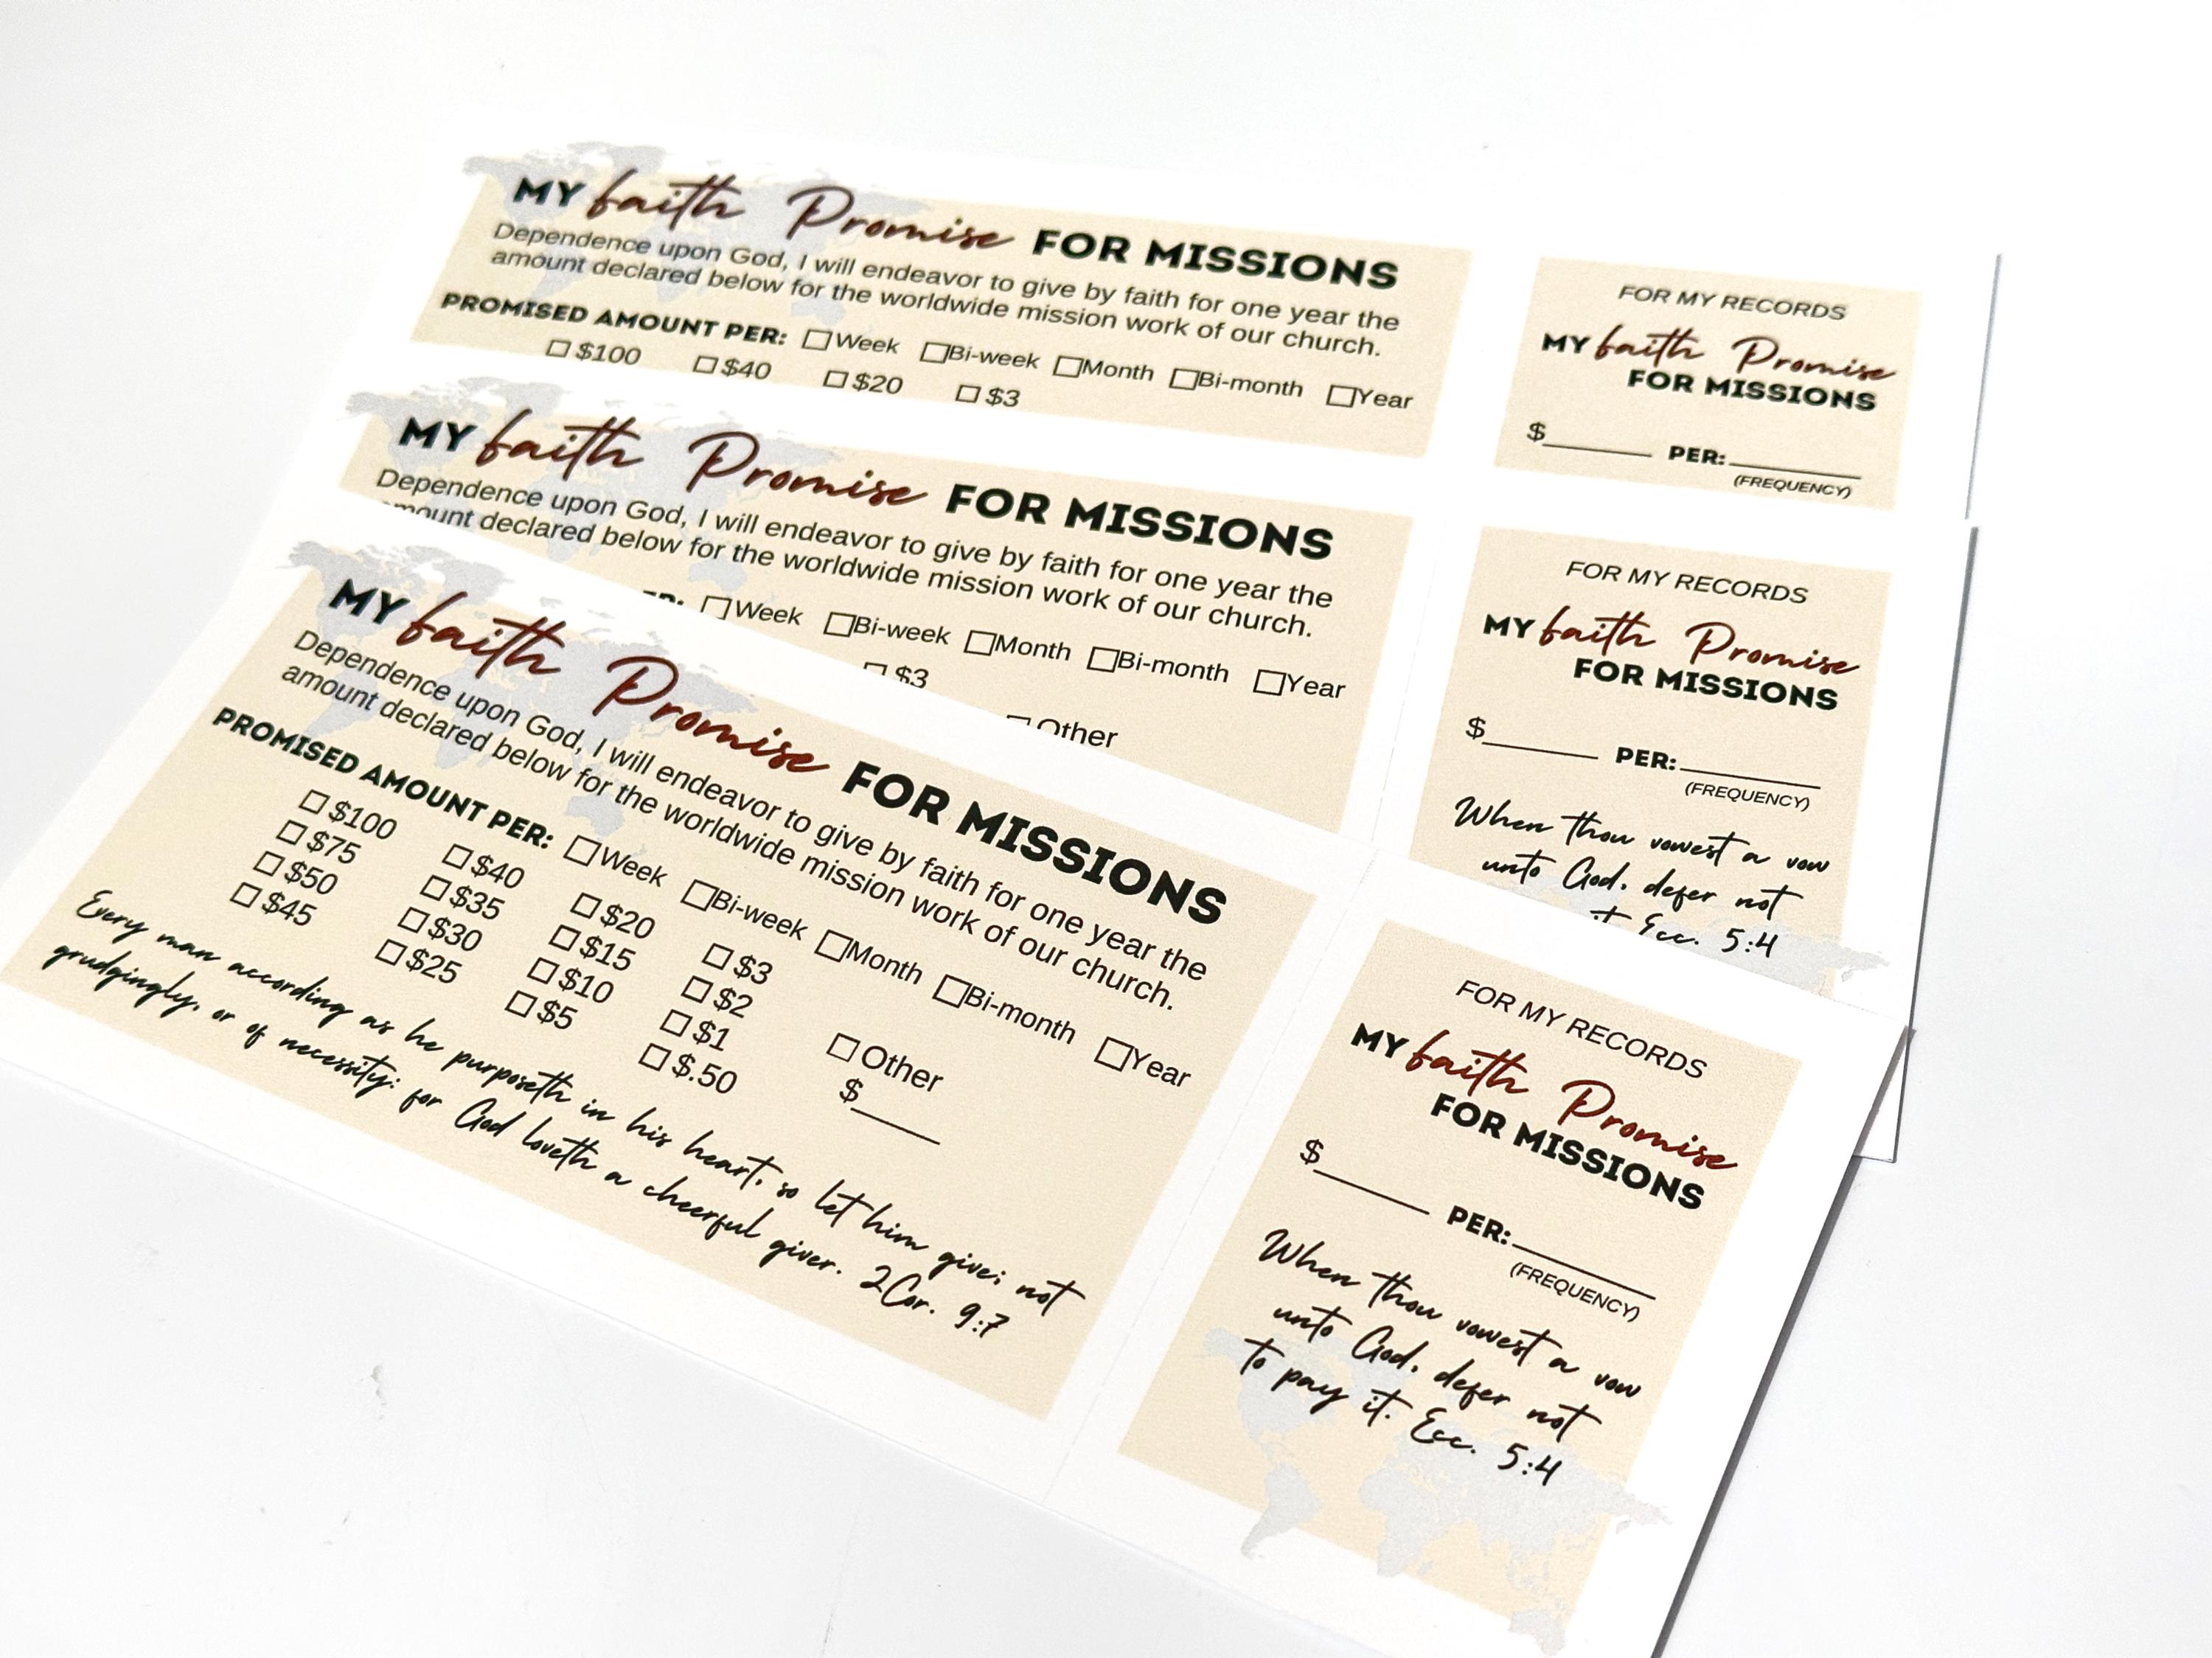 MY faith Promise FOR MISSIONS
Dependence upon God, I will endeavor to give by faith for one year the
amount declared below for the worldwide mission work of our church.
PROMISED AMOUNT PER: Week Bi-week Month Bi-month Year
$100 $40 $20 $3
FOR MY RECORDS
MY faith Promise
FOR MISSIONS
$______ PER:________
(FREQUENCY)
MY faith Promise FOR MISSIONS
Dependence upon God, I will endeavor to give by faith for one year the
amount declared below for the worldwide mission work of our church.
Week Bi-week Month Bi-month Year
$3
Other
FOR MY RECORDS
MY faith Promise
FOR MISSIONS
$______ PER:________
(FREQUENCY)
When thou vowest a vow
unto God, defer not
it. Ecc. 5:4
MY faith Promise FOR MISSIONS
Dependence upon God, I will endeavor to give by faith for one year the
amount declared below for the worldwide mission work of our church.
PROMISED AMOUNT PER: Week Bi-week Month Bi-month Year
$100 $40 $20 $3
$75 $35 $15 $2
$50 $30 $10 $1
$45 $25 $5 $.50
Other
$______
Every man according as he purposeth in his heart, so let him give; not
grudgingly, or of necessity: for God loveth a cheerful giver. 2Cor. 9:7
FOR MY RECORDS
MY faith Promise
FOR MISSIONS
$______ PER:________
(FREQUENCY)
When thou vowest a vow
unto God, defer not
to pay it. Ecc. 5:4